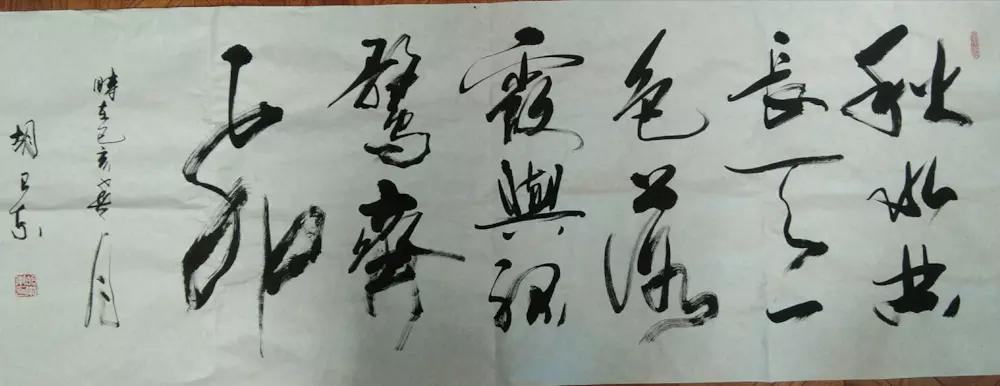 秋水共
長天一
色落
霞與孤
鶩齊
飛
時在己亥 月
胡卫东